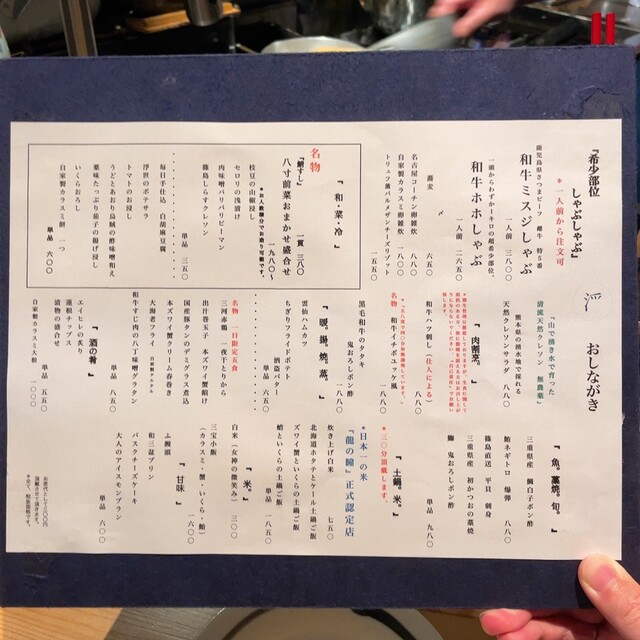 おしながき
『希少部位
しゃぶしゃぶ』
*一人前から注文可
鹿児島県さつまビーフ 雌牛 特5番
和牛ミスジしゃぶ
一人前 三八〇〇
一頭からわずか一キロの超希少部位。
和牛ホホしゃぶ
一人前 二六五〇
〆
蕎麦 六五〇
名古屋コーチン卵雑炊 八八〇
自家製カラスミ卵雑炊 一八八〇
トリュフ薫パルメザンチーズリゾット
一五五〇
『和・菜・冷』
名物
『鯖すし』 一貫 三八〇
八寸前菜おまかせ盛合せ
一九八〇〜
*お人数様分でお造り可能です。
枝豆の山椒浸し
セロリの浅漬け
肉味噌バリバリピーマン
篠島しらすクレソン
単品 三五〇
毎日手仕込 白胡麻豆腐
浮世のポテサラ
トマトのお浸し
うどとあおり烏賊の酢味噌和え
薬味たっぷり茄子の揚げ浸し
いくらおろし
自家製カラスミ餅 一つ
単品 六〇〇
「山で湧き水で育った」
清流天然クレソン 無農薬」
熊本県の湧水地で採れる
天然クレソンサラダ 八八〇
『肉割烹。』
和牛ハツ刺し（仕入による）
一八八〇
名物 和牛イチボユッケ風
一八八〇
黒毛和牛のタタキ
鬼おろしポン酢
一八八〇
『暖。揚。焼。蒸。』
雲仙ハムカツ
ちぎりフライドポテト
酒盗バター
単品 六五〇
名物 一日限定五食
三河赤鶏 一夜干とりから
出汁巻玉子 本ズワイ蟹餡け
国産豚タンのデミグラス煮込
本ズワイ蟹クリーム春巻き
大海老フライ 自家製タルタル
和牛すじ肉の八丁味噌グラタン
単品 八五〇
『酒の肴』
エイヒレの炙り
蓮根チップス
漬物の盛合せ
単品 五五〇
自家製カラスミ大根 一〇〇〇
『魚。藁焼。旬。』
三重県産 鯛白子ポン酢
鮪ネギトロ 爆弾 八八〇
篠島直送 平貝 刺身
三重県産 初かつおの藁焼
鰤 鬼おろしポン酢
単品 九八〇
『土鍋。米。』
*三〇分頂戴します。
*日本一の米
『龍の瞳』正式認定店
炊き上げ白米 七五〇
北海道ホタテとケール土鍋ご飯
ズワイ蟹といくらの土鍋ご飯
鮭といくらの土鍋ご飯
単品 一八五〇
『米。』
白米（女神の微笑み） 三〇〇
三宝小飯
（カラスミ・蟹・いくら・鮭）
一六〇〇
『甘味』
上鰻頭
和三盆プリン
バスクチーズケーキ
大人のアイスモンブラン
単品 六〇〇
お席代として五〇〇円
頂戴させて頂きます。
*全て、税別価格です。